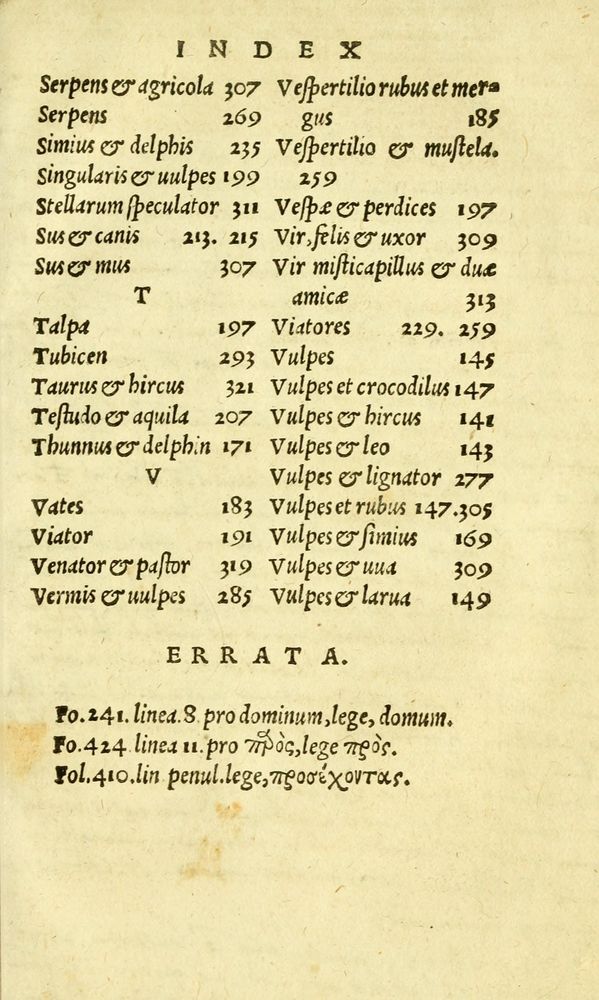 INDEX
Serpens & agricola 307
Serpens 269
Simius & delphis 235
Singularis & uulpes 199
Stellarum ſpeculator 311
Sus & canis 213. 215
Sus & mus 307
T
Talpa 197
Tubicen 293
Taurus & hircus 321
Teſtudo & aquila 207
Thunnus & delphin 171
V
Vates 183
Viator 191
Venator & paſtor 319
Vermis & uulpes 285
Veſpertilio rubus et mer
gus 185
Veſpertilio & muſtela.
259
Veſpæ & perdices 197
Vir, felis & uxor 309
Vir miſticapillus & duæ
amicæ 313
Viatores 229. 259
Vulpes 145
Vulpes et crocodilus 147
Vulpes & hircus 141
Vulpes & leo 143
Vulpes & lignator 277
Vulpes et rubus 147.305
Vulpes & ſimius 169
Vulpes & uua 309
Vulpes & larua 149
ERRATA.
Fo.241. linea.8 pro dominum, lege, domum.
Fo.424 linea 11. pro lege πρὸς.
Fol.410. lin penul. lege, προσέχοντας.